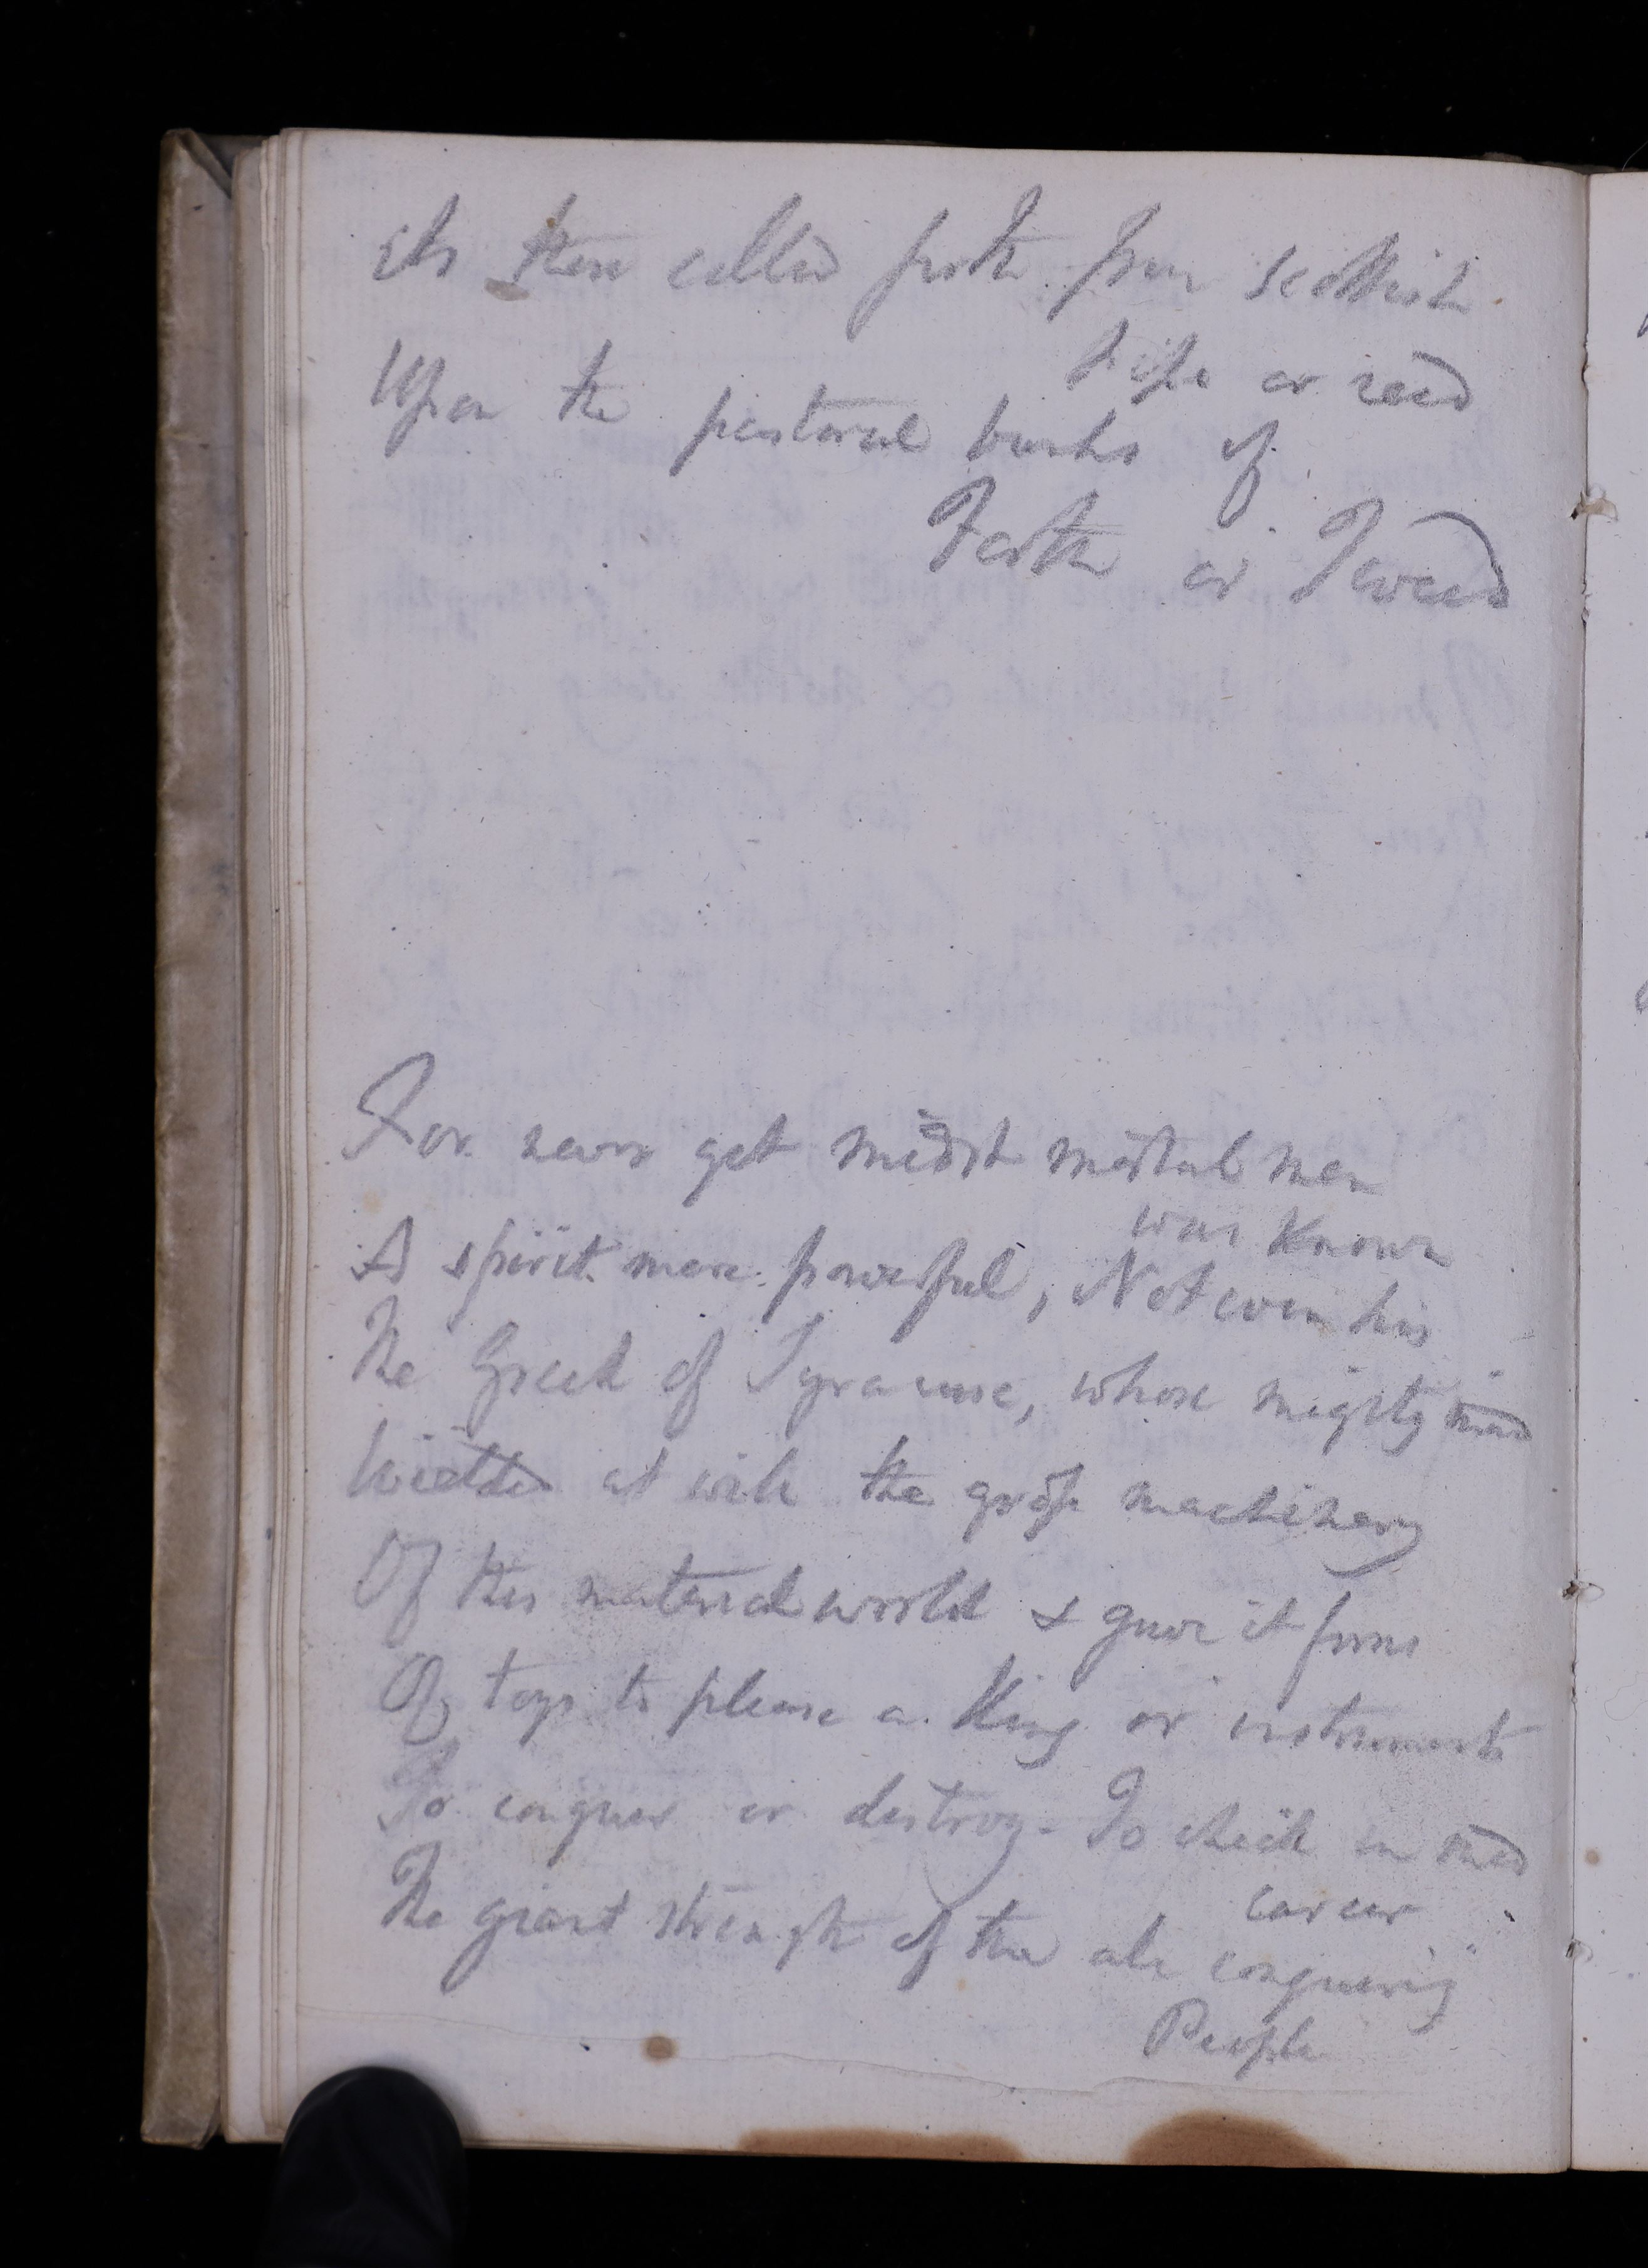 As those called forth from Scottish
pipe or reed
Upon the pastoral banks of
Forth or Tweed
For never yet midst mortal men
was known
A spirit more powerful, Not even him
The Greek of Syracuse, whose mighty mind
Wielded at will the gross machinery
Of this material world & gave it forms
Of toys to please a King or instruments
To conquer or destroy - To check in mid
career
The giant strength of the all conquering
People